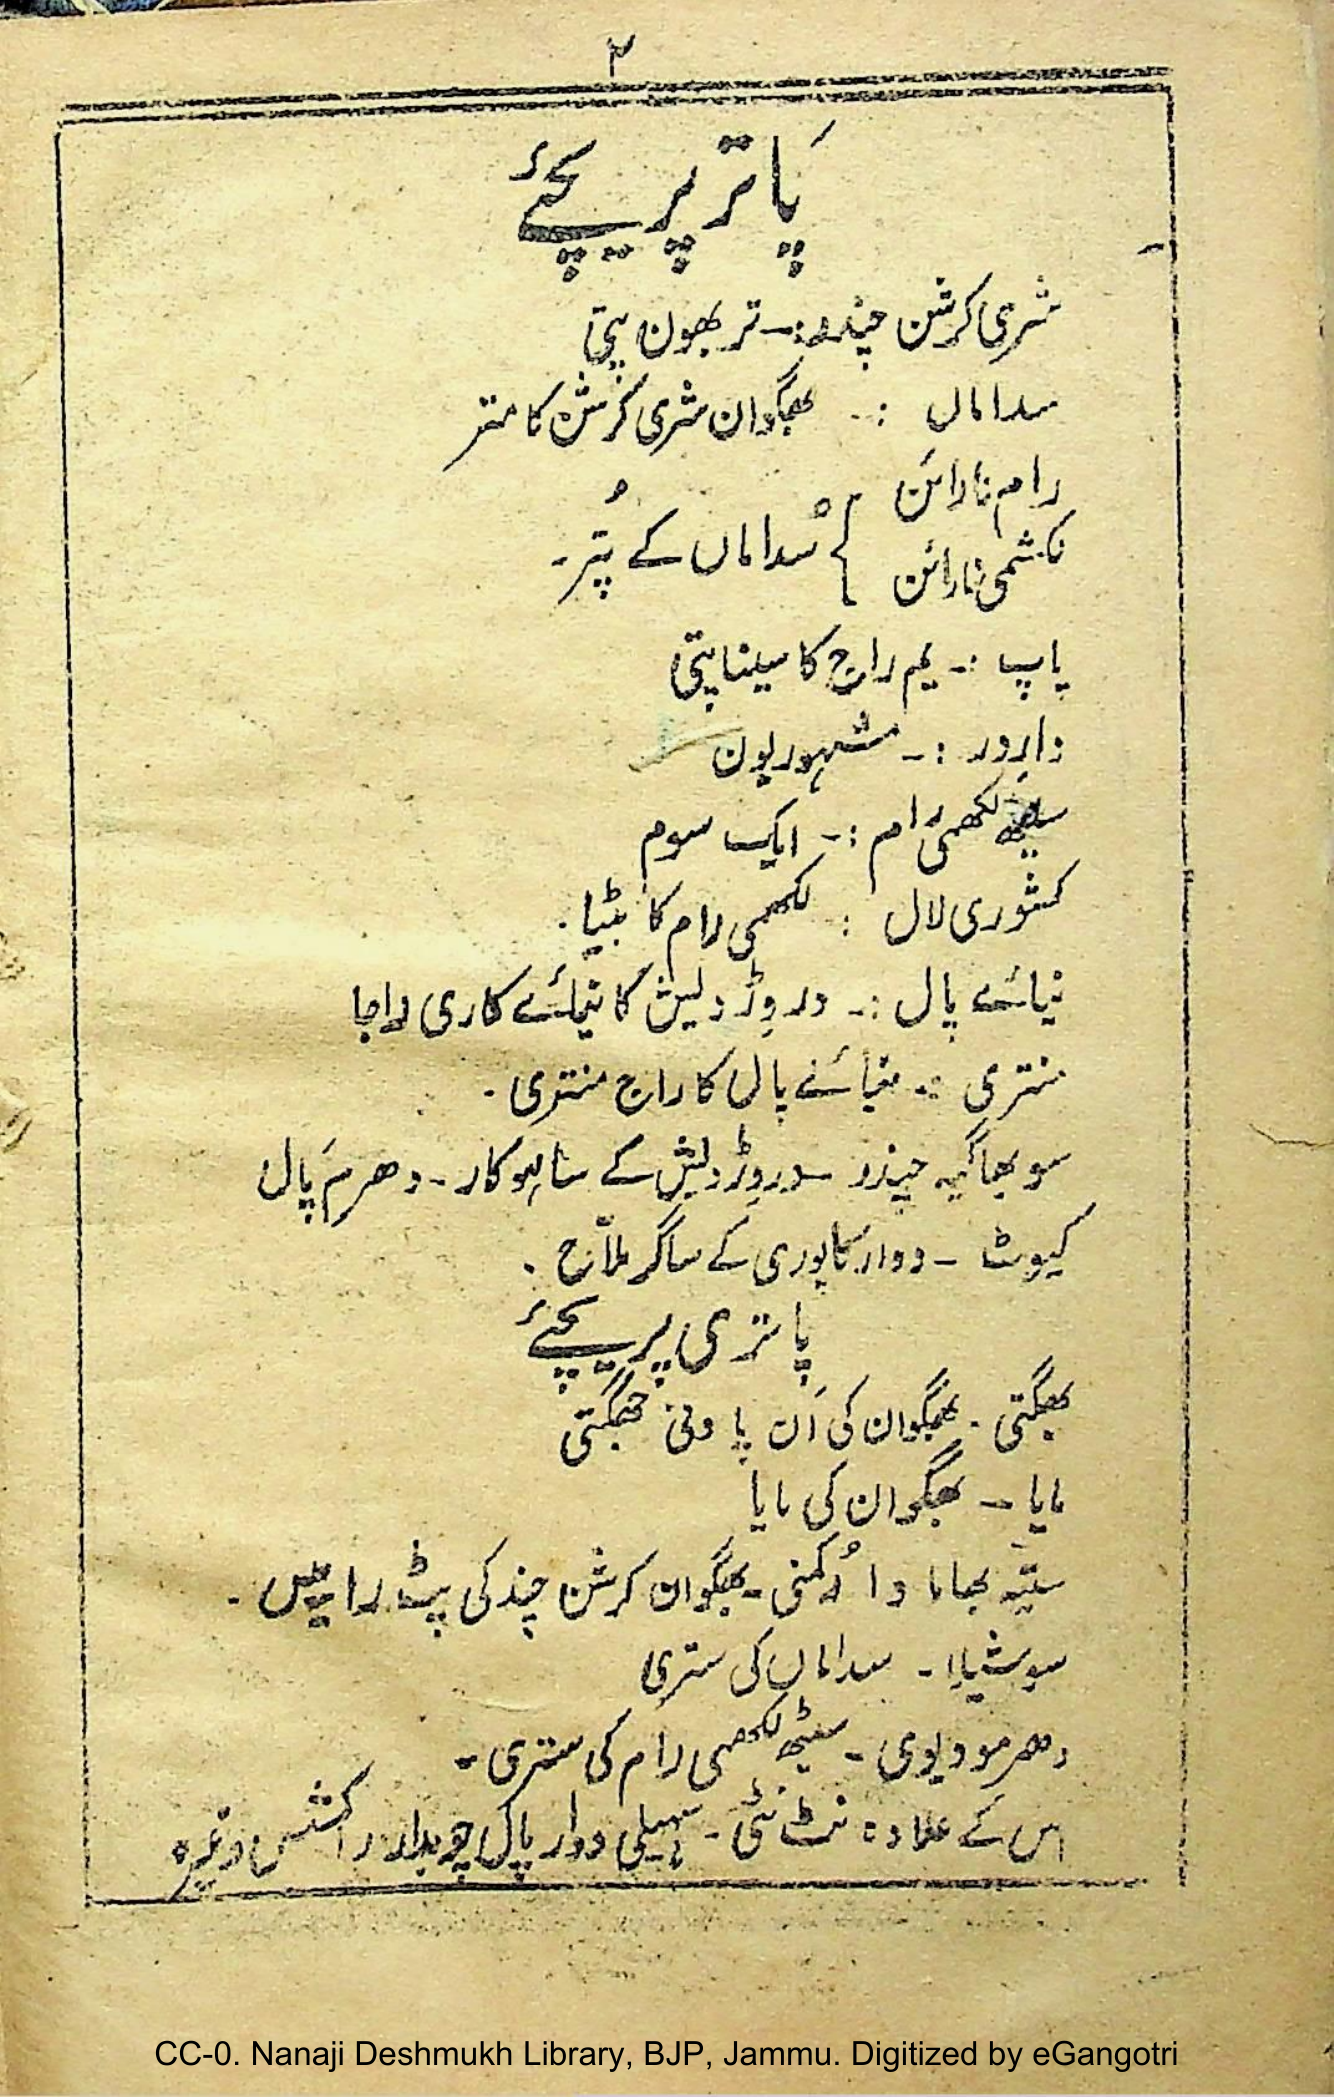 ۲
پَاتر پریچئے
شری کرشن چندر:۔ تر بھون پتی
سداماں :۔ بھگوان شری کرشن کا متر
رام نارائن
لکشمی نارائن } سُداماں کے پُتر۔
پاپ :۔ یم راج کا سیناپتی
دارِدر :۔ مشہور پون
سیٹھ لکھمی رام :۔ ایک سوم
کشوری لال : لکھمی رام کا بیٹا۔
نیائے پال :۔ دروِڑ دیش کا نیائے کاری راجا
منتری :۔ نیائے پال کا راج منتری۔
سوبھاگیہ چندر ۔ دروِڑ دیش کے ساہوکار۔ دھرم پال
کیوٹ ۔ دوارکاپوری کے ساگر ملاّح۔
پاتری پریچئے
بھگتی ۔ بھگوان کی اَن پاونی بھگتی
مایا ۔ بھگوان کی مایا
ستیہ بھاما وا رُکمنی ۔ بھگوان کرشن چند کی پٹ رانیں۔
سوشیلا ۔ سداماں کی ستری
دھرمو دیوی ۔ سیٹھ لکھمی رام کی ستری ۔
اس کے علاوہ نٹ نٹی ۔ سہیلی دوار پال چوبدار راکشس وغیرہ
CC-0. Nanaji Deshmukh Library, BJP, Jammu. Digitized by eGangotri